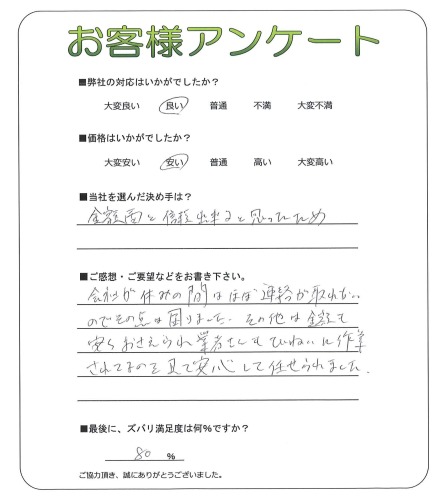 お客様アンケート
■弊社の対応はいかがでしたか？
大変良い 良い 普通 不満 大変不満
■価格はいかがでしたか？
大変安い 安い 普通 高い 大変高い
■当社を選んだ決め手は？
金額面と信頼出来ると思ったため
■ご感想・ご要望などをお書き下さい。
会社が休みの間はほぼ連絡が取れない
のでその点は困りました。その他は金額も
安くおさえられ業者さんもていねいに作業
されてるのを見て安心して任せられました。
■最後に、ズバリ満足度は何%ですか？
80 %
ご協力頂き、誠にありがとうございました。